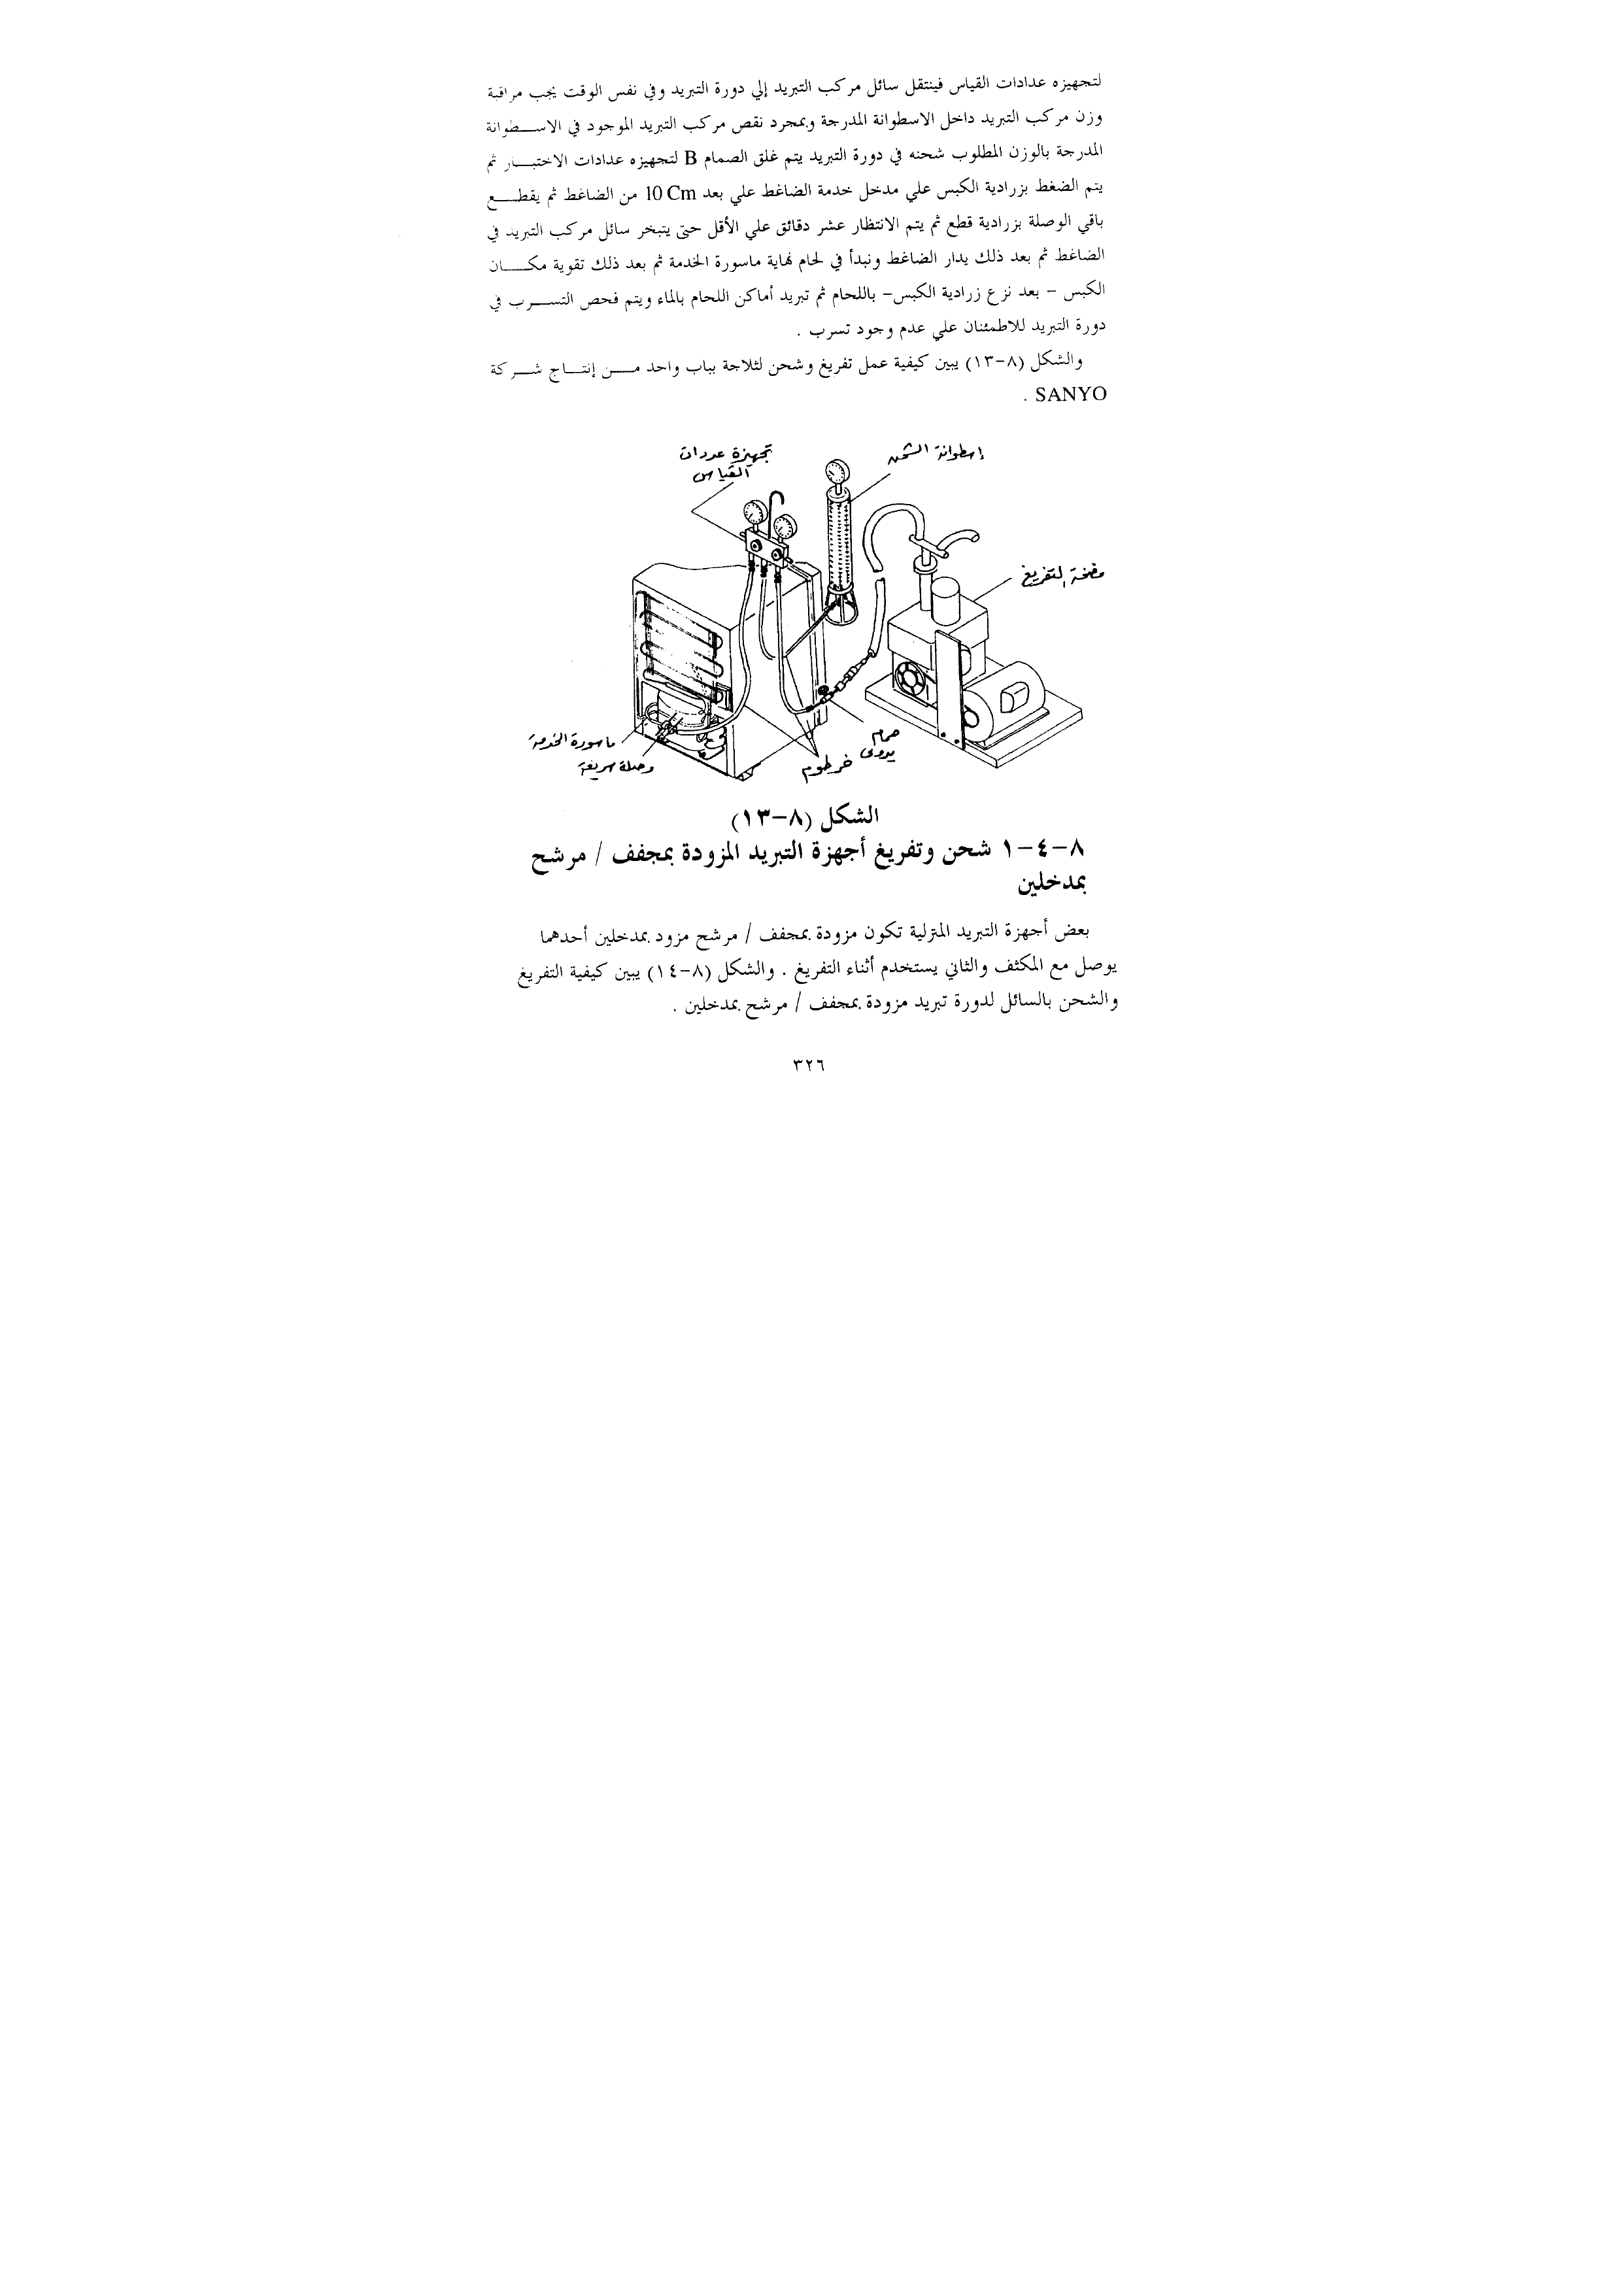 لتجهيزه عدادات القياس فينتقل سائل مركب التبريد إلي دورة التبريد وفي نفس الوقت يجب مراقبة
وزن مركب التبريد داخل الاسطوانة المدرجة وبمجرد نقص مركب التبريد الموجود في الاســطوانة
المدرجة بالوزن المطلوب شحنه في دورة التبريد يتم غلق الصمام B لتجهيزه عدادات الاختبــار ثم
يتم الضغط بزرادية الكبس علي مدخل خدمة الضاغط علي بعد 10 Cm من الضاغط ثم يقطــع
باقي الوصلة بزرادية قطع ثم يتم الانتظار عشر دقائق علي الأقل حتى يتبخر سائل مركب التبريد في
الضاغط ثم بعد ذلك يدار الضاغط ونبدأ في لحام نهاية ماسورة الخدمة ثم بعد ذلك تقوية مكــان
الكبس – بعد نزع زرادية الكبس– باللحام ثم تبريد أماكن اللحام بالماء ويتم فحص التســرب في
دورة التبريد للاطمئنان علي عدم وجود تسرب .
والشكل (٨–١٣) يبين كيفية عمل تفريغ وشحن لثلاجة بباب واحد مــن إنتــاج شــركة
SANYO .
إسطوانة الشحن
تجهيزة عدادات
القياس
مضخة التفريغ
صمام
يدوى
خرطوم
ماسورة الخدمة
وصلة سريعة
الشكل (٨–١٣)
٨–٤–١ شحن وتفريغ أجهزة التبريد المزودة بمجفف / مرشح
بمدخلين
بعض أجهزة التبريد المنزلية تكون مزودة بمجفف / مرشح مزود بمدخلين أحدهما
يوصل مع المكثف والثاني يستخدم أثناء التفريغ . والشكل (٨–١٤) يبين كيفية التفريغ
والشحن بالسائل لدورة تبريد مزودة بمجفف / مرشح بمدخلين .
٣٢٦